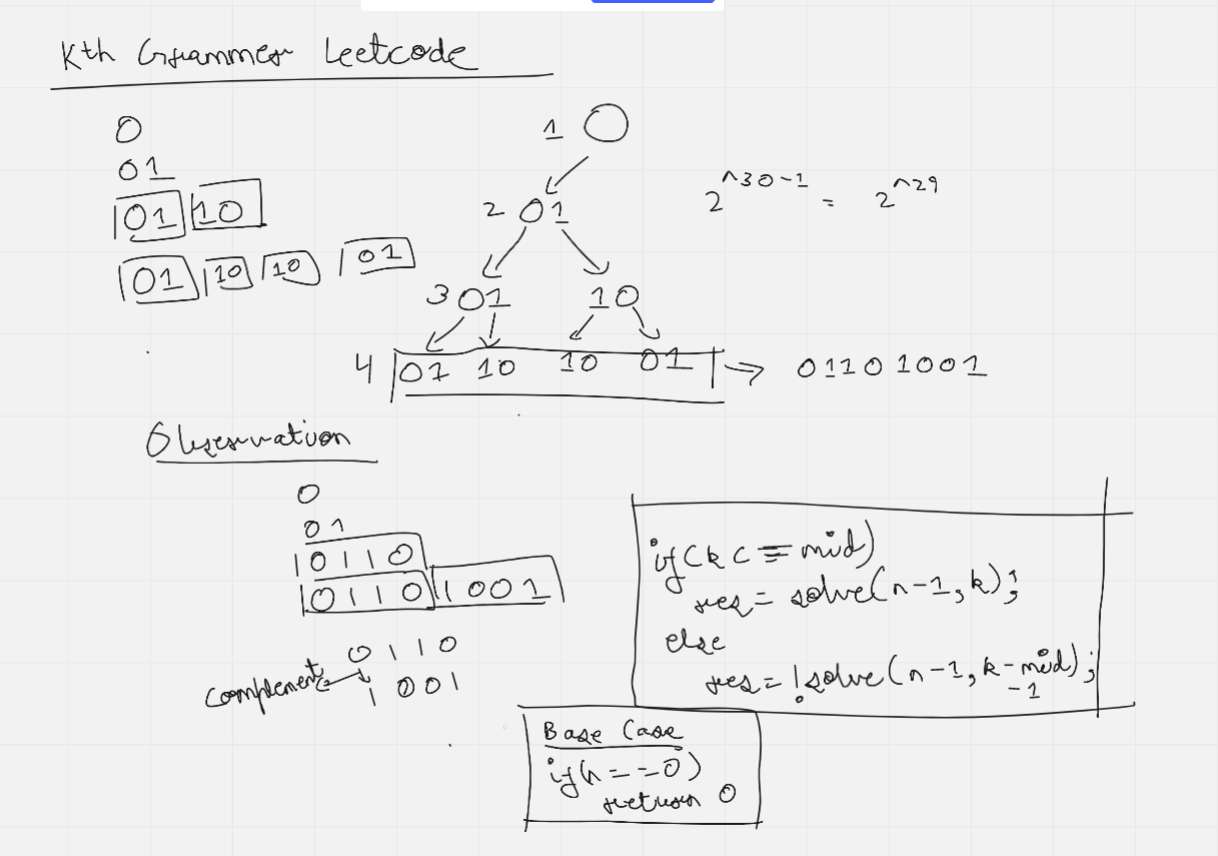 Kth Grammer Leetcode
0
01
01 10
01 10 10 01
1 0
2 01
3 01 10
4 01 10 10 01 → 01101001
2^30-1 = 2^29
Observation
0
01
0110
0110 1001
0110
complement
1001
if(k <= mid)
res = solve(n-1, k);
else
res = !solve(n-1, k-mid);
-1
Base Case
if(n==0)
return 0